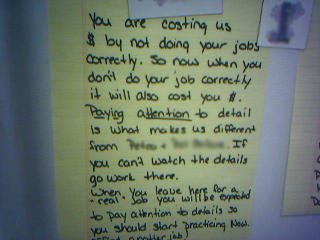 You are costing us
$ by not doing your jobs
correctly. So now when you
don't do your job correctly
it will also cost you $.
Paying attention to detail
is what makes us different
from . If
you can't watch the details
go work there.
When you leave here for a
"real" Job you will be expected
to pay attention to details so
you should start practicing Now.
another job)